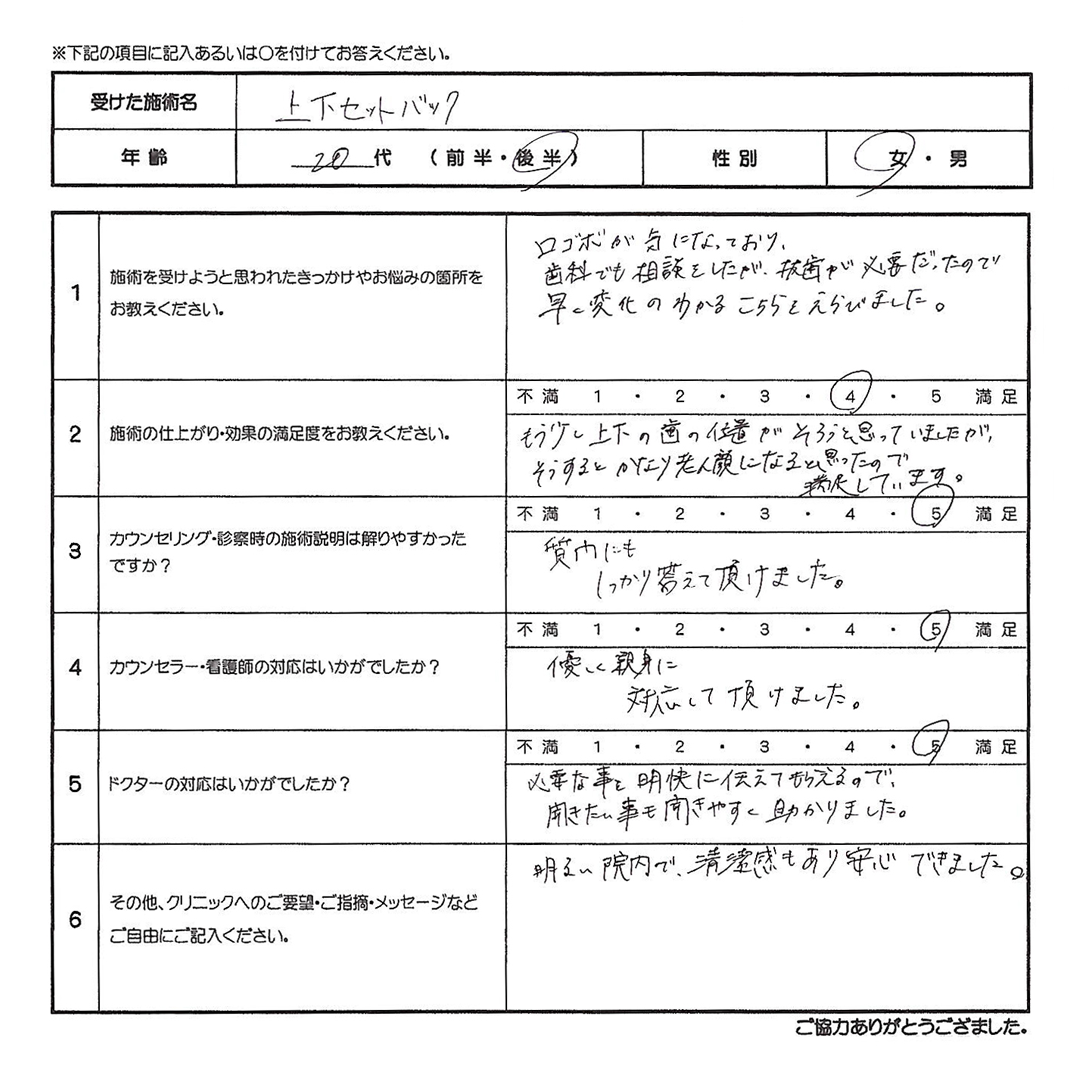 ※下記の項目に記入あるいは〇を付けてお答えください。
受けた施術名 上下セットバック
年齢 20代 (前半・後半) 性別 女・男
1 施術を受けようと思われたきっかけやお悩みの箇所を
お教えください。
口ゴボが気になっており、
歯科でも相談をしたが、抜歯が必要だったので
早く変化のわかるこちらをえらびました。
2 施術の仕上がり・効果の満足度をお教えください。
不満 1・2・3・4・5 満足
もう少し上下の歯の位置がそろうと思っていましたが、
そうするとかなり老人顔になると思ったので
満足しています。
3 カウンセリング・診察時の施術説明は解りやすかった
ですか?
不満 1・2・3・4・5 満足
質内にも
しっかり答えて頂けました。
4 カウンセラー・看護師の対応はいかがでしたか?
不満 1・2・3・4・5 満足
優しく親身に
対応して頂けました。
5 ドクターの対応はいかがでしたか?
不満 1・2・3・4・5 満足
必要な事を明快に伝えてもらえるので、
聞きたい事も聞きやすく助かりました。
6 その他、クリニックへのご要望・ご指摘・メッセージなど
ご自由にご記入ください。
明るい院内で、清潔感もあり安心できました。
ご協力ありがとうございました。